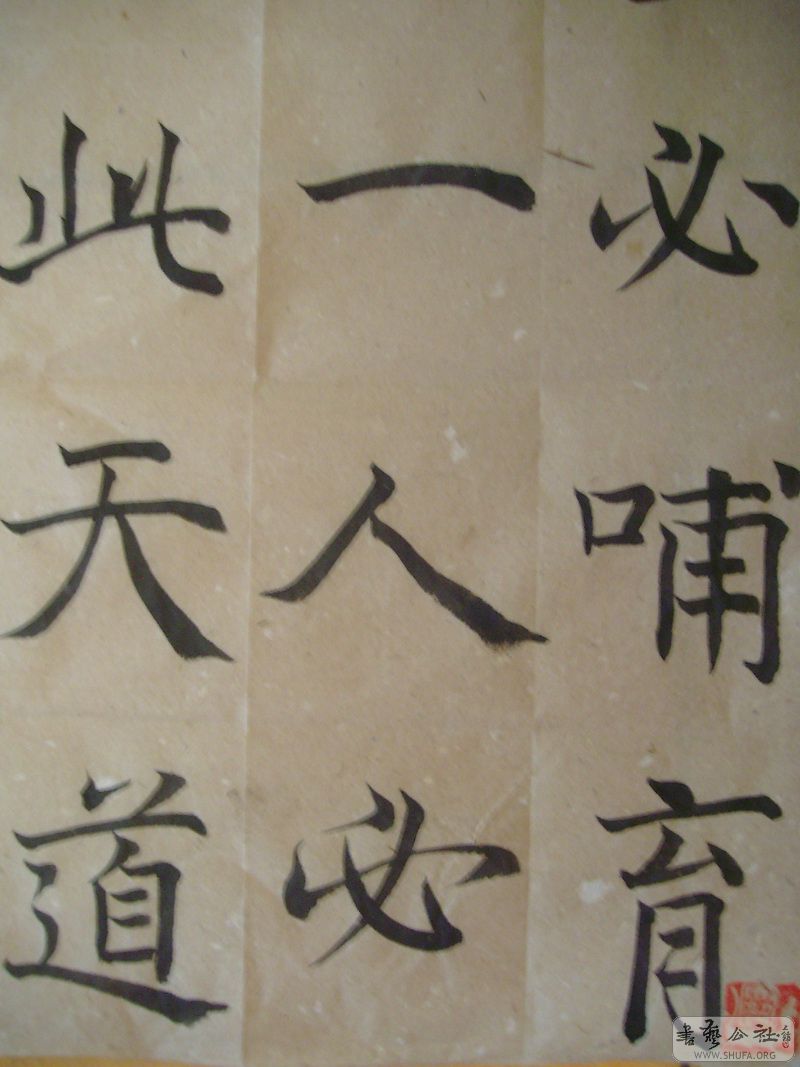 必哺育
一人必
此天道
書藝公社
WWW.SHUFA.ORG